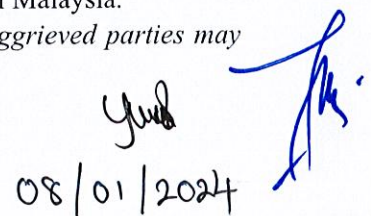 Malaysia.
ggrieved parties may
08/01/2024